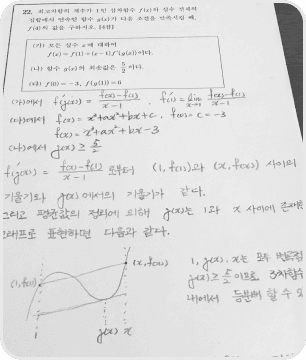 22. 최고차항의 계수가 1인 삼차함수 f(x)와 실수 전체의
집합에서 연속인 함수 g(x)가 다음 조건을 만족시킬 때,
f(4)의 값을 구하시오. [4점]
(가) 모든 실수 x에 대하여
f(x) = f(1) + (x-1)f'(g(x))이다.
(나) 함수 g(x)의 최솟값은 5/2이다.
(다) f(0) = -3, f(g(1)) = 6
(가)에서 f'(g(x)) = f(x)-f(1)/x-1 , f'(1) = lim x→1 f(x)-f(1)/x-1
(다)에서 f(x) = x³+ax²+bx+c, f(0) = c = -3
f(x) = x³+ax²+bx-3
(나)에서 g(x) ≥ 5/2
f'(g(x)) = f(x)-f(1)/x-1 로부터 (1, f(1))과 (x, f(x)) 사이의
기울기와 g(x)에서의 기울기가 같다.
그리고 평균값의 정리에 의해 g(x)는 1과 x 사이에 존재
그래프로 표현하면 다음과 같다.
(x, f(x))
(1, f(1))
1 g(x) x
1, g(x), x는 모두
g(x) ≥ 5/2 이므로 3차함수
내에서 등분해 할 수